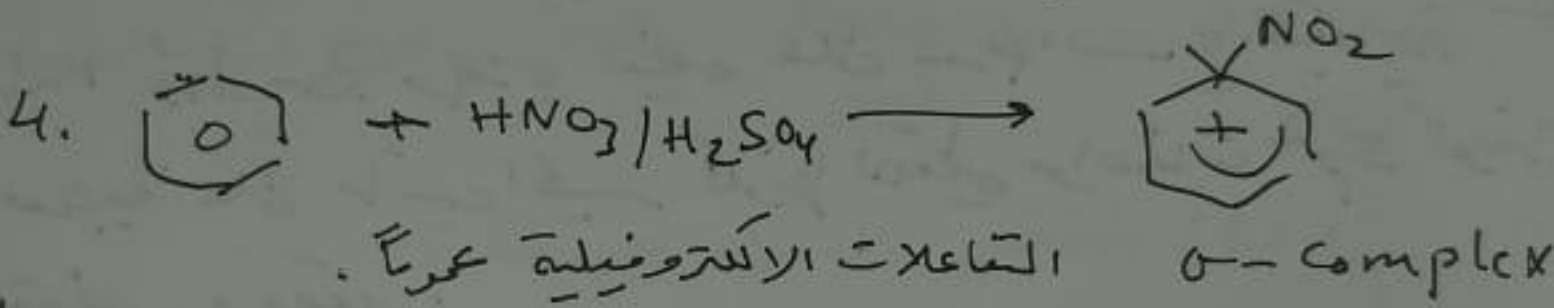 4. + HNO3/H2SO4 → NO2
+
التفاعلات الالكتروفيلية عموماً. σ-complex